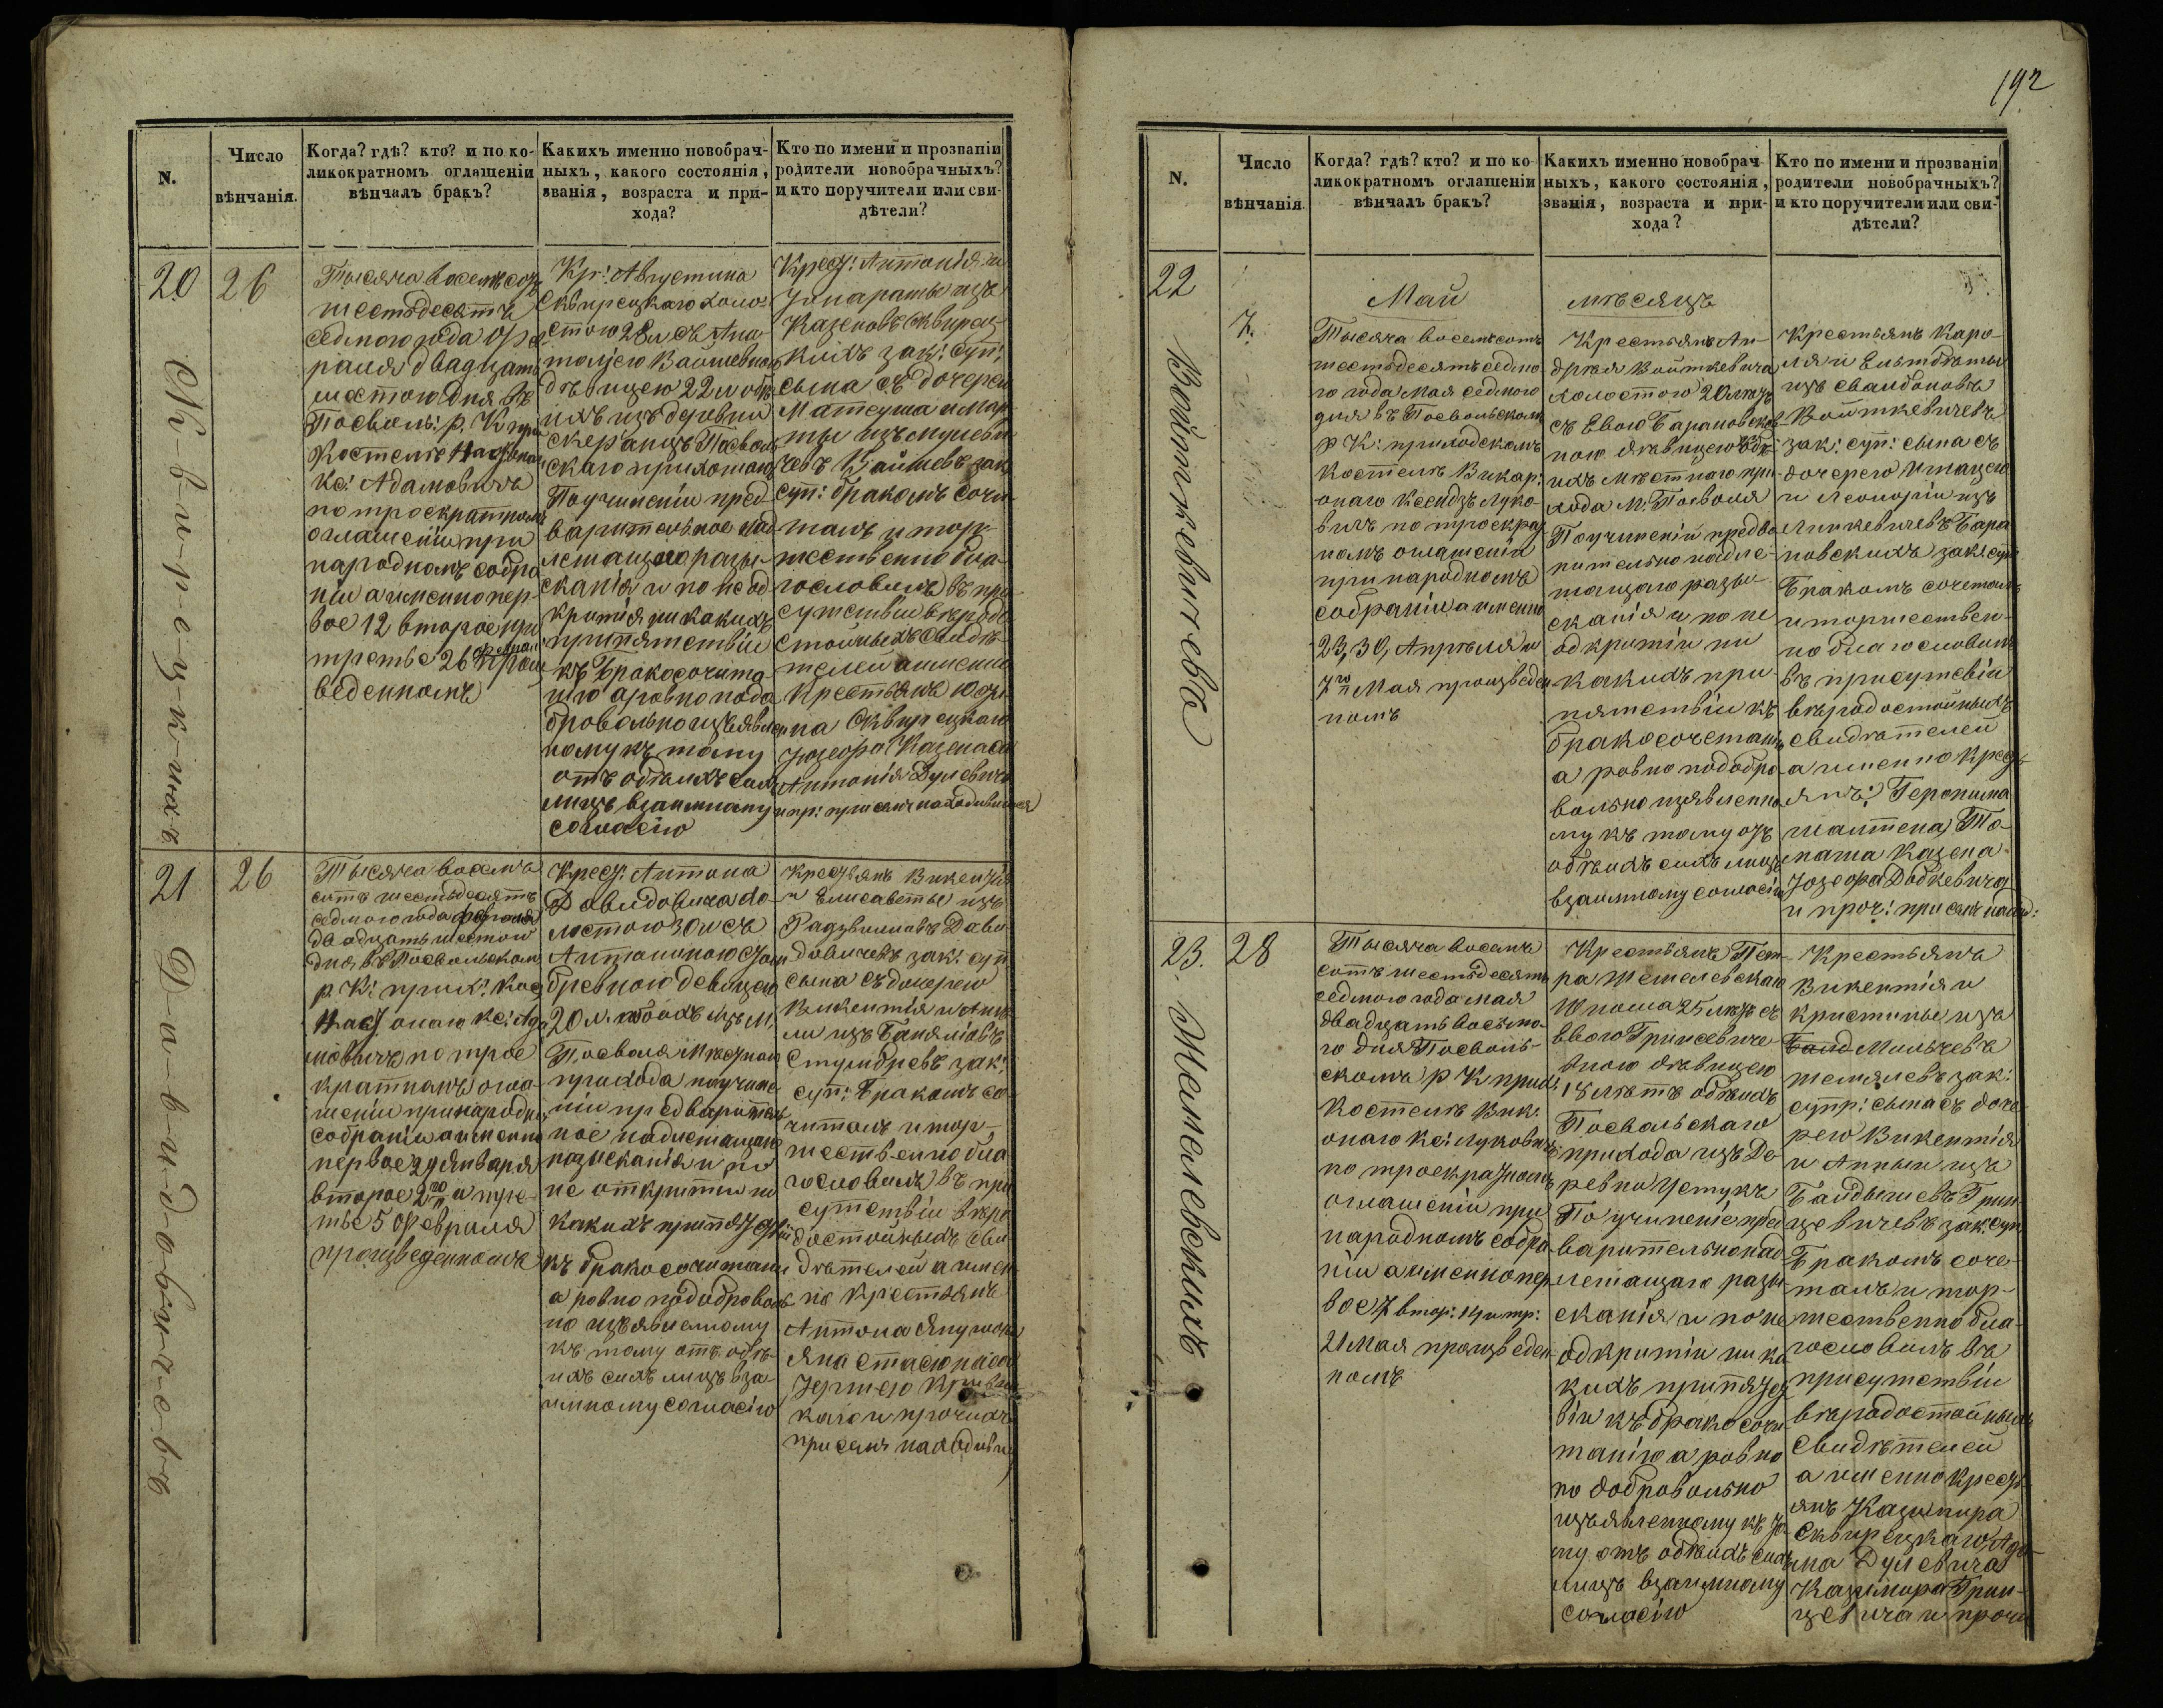 N.
Число
вѣнчанія.
Когда? гдѣ? кто? и по ко-
ликократномъ оглашеніи
вѣнчалъ бракъ?
Какихъ именно новобрач-
ныхъ, какого состоянія,
званія, возраста и при-
хода?
Кто по имени и прозваніи
родители новобрачныхъ?
и кто поручители или сви-
дѣтели?
20
26
Тысяча восемьсотъ
шестьдесятъ
седмого года Фев
раля двадцать
шестого дня въ
Посволь: р. К при
Костелѣ Наст
Кс: Адамовичъ
по троекратномъ
оглашеніи при
народномъ собра
ніи а именно пер-
вое 12 второе
третье 26 Февраля произ
веденномъ
Кр: Августина
Сквирецкаго холо-
стого 28 л съ Ана-
толіею Вайшевною
дѣвицею 22 л обо
ихъ изъ деревни
Посволь
скаго прихожан
По учиненіи пред
варительное над
лежащаго разы-
сканія и по не од
критія ни какихъ
припятствіи
къ Бракосочита
нію а ровно по до
бровольно изъявлен
ному къ тому
отъ обѣихъ сихъ
лицъ взаимному
согласію
Крест: Антонія и
Маргаты изъ
Казеновъ Сквирец
кихъ зак: суп:
сына съ дочерею
Матеуша и Мар
ты изъ
Вайшевъ зак
суп: бракомъ соче
талъ и тор-
жественно бла-
гословилъ въ при
сутствіи вѣродо
стойныхъ свидѣ
телей а именно
Крестьянъ Юзе
фа Сквирецкаго
Іозефа Казенаса
Антонія Дулевича
и пр: при семъ находившихся
Сквирецкихъ
21
26
Тысяча восемь
сотъ шестьдесятъ
седмого года февраля
двадцать шестого
дня въ Посвольском
р. К: прих: Кос
Наст онаго кс: Ада
мовичъ по трое
кратномъ огла-
шеніи при народн
собраніи а именно
первое 29 Января
второе 2го и тре-
тье 5 Февраля
произведенномъ
Крест: Антона
Давидовича хо-
лостого 30 л съ
Антониною Стом
бревною девицею
20 л. обоихъ изъ М.
Посволя Мѣстнаго
прихода по учине
ніи предваритель
ное надлежащаго
розысканія и по
не открытіи ни
какихъ припятствій
къ бракосочитанію
а ровно по доброволь
но изъявленному
къ тому отъ обѣ-
ихъ сихъ лицъ вза-
имному согласію
Крестьянъ Викентія
и Елисаветы изъ
Радзвиловъ Дави-
довичевъ зак: суп
сына съ дочерею
Викентія и Анне
ли изъ Баняліовъ
Стумбревъ зак:
суп: Бракомъ со-
читалъ и тор-
жественно бла
гословилъ въ при
сутствіи вѣро
достойныхъ сви
дѣтелей а имен
но Крестьянъ
Антона
Яна
каго и прочихъ
при семъ находивш
Давидовичевъ
192
N.
Число
вѣнчанія.
Когда? гдѣ? кто? и по ко
ликократномъ оглашеніи
вѣнчалъ бракъ?
Какихъ именно новобрач
ныхъ, какого состоянія,
званія, возраста и при-
хода?
Кто по имени и прозваніи
родители новобрачныхъ?
и кто поручители или сви-
дѣтели?
22
Май мѣсяцъ
7.
Тысяча восемьсотъ
шестьдесятъ седмо
го года Мая седмого
дня въ Посвольскомъ
р К: приходскомъ
Костелѣ Викар:
онаго Ксендзъ Луко-
вичъ по троекрат
номъ оглашеніи
при народномъ
собраніи а именно
23, 30, Апрѣля и
7го Мая произведен
номъ
Крестьянъ Ан-
дрея Войткевича
холостого 20 лѣтъ
съ Евою Барановско
ною дѣвицею обо
ихъ мѣстнаго при
хода М. Посволя
По учиненіи предва
рительно надле-
жащаго разы-
сканія и по не
одкритіи ни
какихъ при-
пятствіи къ
бракосочетанію
а ровно по добро-
вольно изявленно
му къ тому отъ
обѣихъ сихъ лицъ
взаимному согласію
Крестьянъ Каро-
ля и Ельжбѣты
изъ Свалбоновъ
Войткевичевъ
зак: суп: сына съ
дочерею Игнацею
и Леонорою изъ
Линкевичевъ Бара
новскихъ зак: суп
Бракомъ сочеталъ
и торжествен-
но благословилъ
въ присутствіи
вѣродостойныхъ
свидѣтелей
а именно Крест
янъ: Геронима
То-
маша Казена-
Іозефа Додкевича
и проч: при семъ наход:
Войткевичева
23.
28
Тысяча восемь
сотъ шестьдесятъ
седмого года Мая
двадцать восьмо-
го дня Посволь-
скомъ р К прих:
Костелѣ Вик:
онаго Кс: Луковичъ
по троекратномъ
оглашеніи при
народномъ собра-
ніи а именно пер
вое 7 втор: 14 и тр:
21 Мая произведен
номъ
Крестьянъ Пет-
ра Жемелевскаго
Юноша 25 лѣтъ съ
Евою Гринсевиче
вною дѣвицею
18 лѣтъ обѣихъ
Посвольскаго
прихода изъ Де-
ревни Устукъ
По учиненіе пред
варительно над
лежащаго разы
сканія и по не
одкритіи ни ка
кихъ припятст
віи къ бракосочи-
танію а ровно
по добровольно
изъявленному къ то
му отъ обѣихъ сихъ
лицъ взаимному
согласію
Крестьянъ
Викентія и
Кристины изъ
Мильчевъ
зак:
супр: сына съ доче
рею Викентія
и Анны изъ
Байдышевъ Грин
цевичевъ зак. суп
Бракомъ соче-
талъ и тор-
жественно бла-
гословилъ въ
присутствіи
вѣродостойныхъ
свидѣтелей
а именно Крест
янъ Казимира
Сквирецкаго, Ада
ма Дулевича
Казимира Грин-
цевича и прочи
Жемелевскихъ